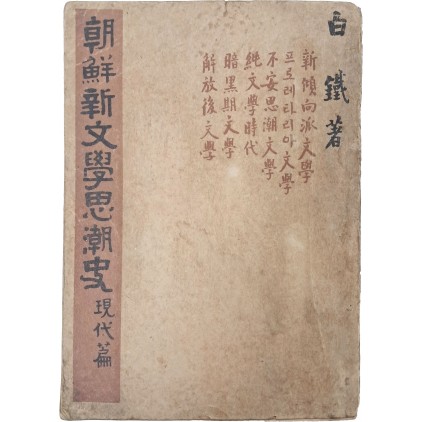 白鐵著
新傾向派文學
프로레타리아文學
不安思潮文學
純文學時代
暗黑期文學
解放後文學
朝鮮新文學思潮史
現代篇